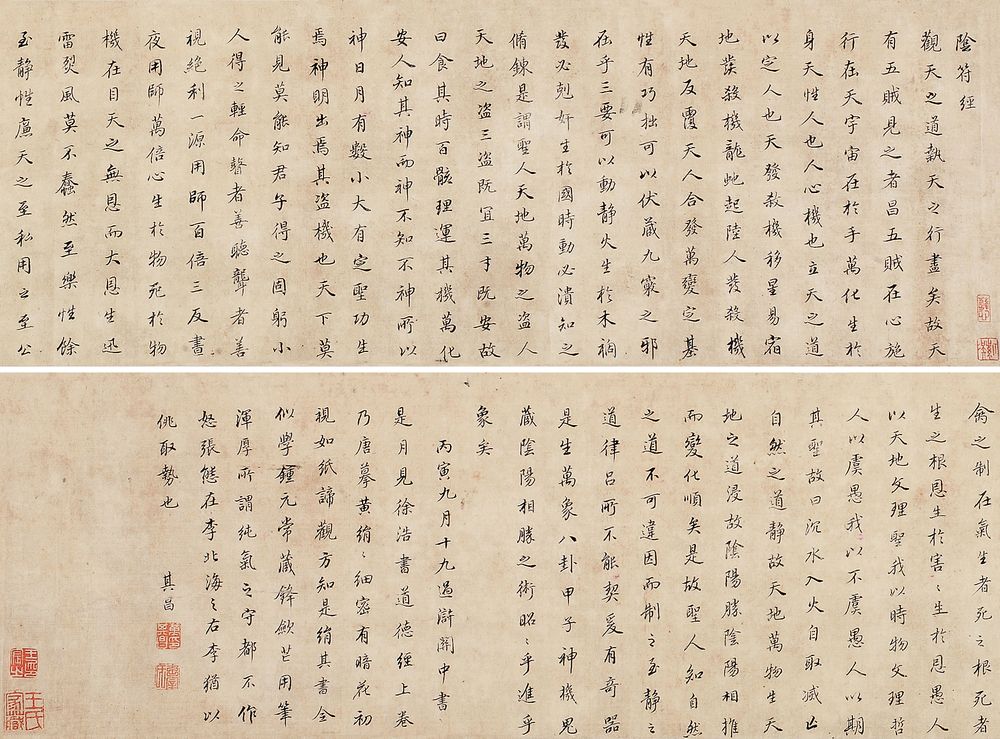 陰符經
觀天之道執天之行盡矣故天
有五賊見之者昌五賊在心施
行在天宇宙在於手萬化生於
身天性人也人心機也立天之道
以定人也天發殺機移星易宿
地發殺機龍虵起陸人發殺機
天地反覆天人合發萬變定基
性有巧拙可以伏蔵九竅之邪
在乎三要可以動静火生於木禍
發必剋奸生於國時動必潰知之
脩鍊是謂聖人天地萬物之盗人
天地之盗三盗既冝三才既安故
曰食其時百骸理運其機萬化
安人知其神而神不知不神所以
神日月有數小大有定聖功生
焉神明出焉其盗機也天下莫
能見莫能知君子得之固躬小
人得之輕命瞽者善聴聾者善
視絶利一源用師百倍三反晝
夜用師萬倍心生於物死於物
機在目天之無恩而大恩生迅
雷烈風莫不蠢然至樂性餘
至静性廉天之至私用之至公
禽之制在氣生者死之根死者
生之根恩生於害〻生於恩愚人
以天地文理聖我以時物文理哲
人以虞愚我以不虞愚人以期
其聖故曰沉水入火自取滅亡
自然之道静故天地萬物生天
地之道浸故陰陽勝陰陽相推
而變化順矣是故聖人知自然
之道不可違因而制之至静之
道律呂所不能契爰有奇器
是生萬象八卦甲子神機鬼
蔵陰陽相勝之術昭〻乎進乎
象矣
丙寅九月十九過滸關中書
是月見徐浩書道徳經上卷
乃唐摹黄絹〻細密有暗花初
視如紙諦觀方知是絹其書全
似學鍾元常蔵鋒歛芒用筆
渾厚所謂純氣之守都不作
怒張態在李北海之右李猶以
佻取勢也
其昌
王氏家蔵